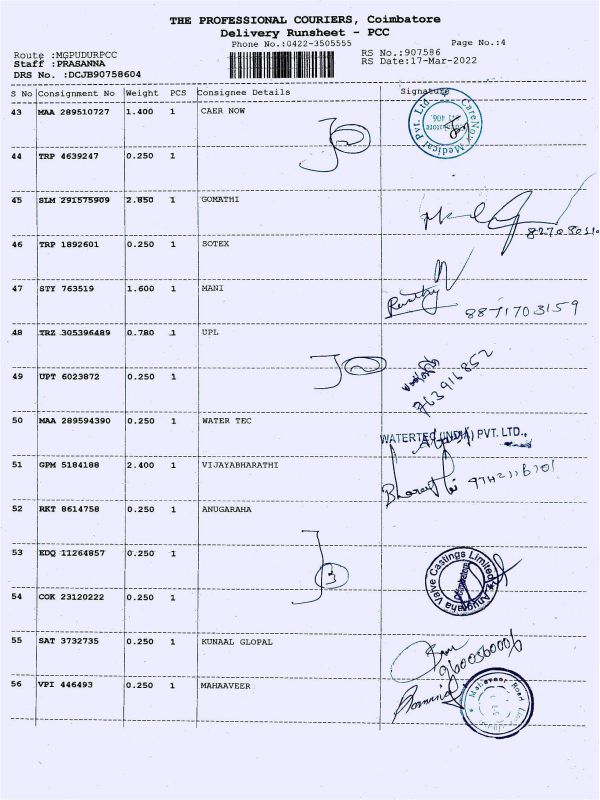 THE PROFESSIONAL COURIERS, Coimbatore
Delivery Runsheet - PCC
Phone No.:0422-3505555 Page No.:4
Route :MGPUDURPCC RS No.:907586
Staff :PRASANNA RS Date:17-Mar-2022
DRS No. :DCJB90758604
S No Consignment No Weight PCS Consignee Details Signature
43 MAA 289510727 1.400 1 CAER NOW
CareNow Medical Pvt. Ltd
2
44 TRP 4639247 0.250 1
45 SLM 291575909 2.850 1 GOMATHI
46 TRP 1892601 0.250 1 SOTEX
47 STY 763519 1.600 1 MANI
8871703159
48 TRZ 305396489 0.780 1 UPL
2
49 UPT 6023872 0.250 1
763916852
50 MAA 289594390 0.250 1 WATER TEC
WATERTEC (INDIA) PVT. LTD.,
51 GPM 5184188 2.400 1 VIJAYABHARATHI
52 RKT 8614758 0.250 1 ANUGARAHA
53 EDQ 11264857 0.250 1
3
Anugraha Valve Castings Limited
Coimbatore
54 COK 23120222 0.250 1
55 SAT 3732735 0.250 1 KUNAAL GLOPAL
9600560006
56 VPI 446493 0.250 1 MAHAAVEER